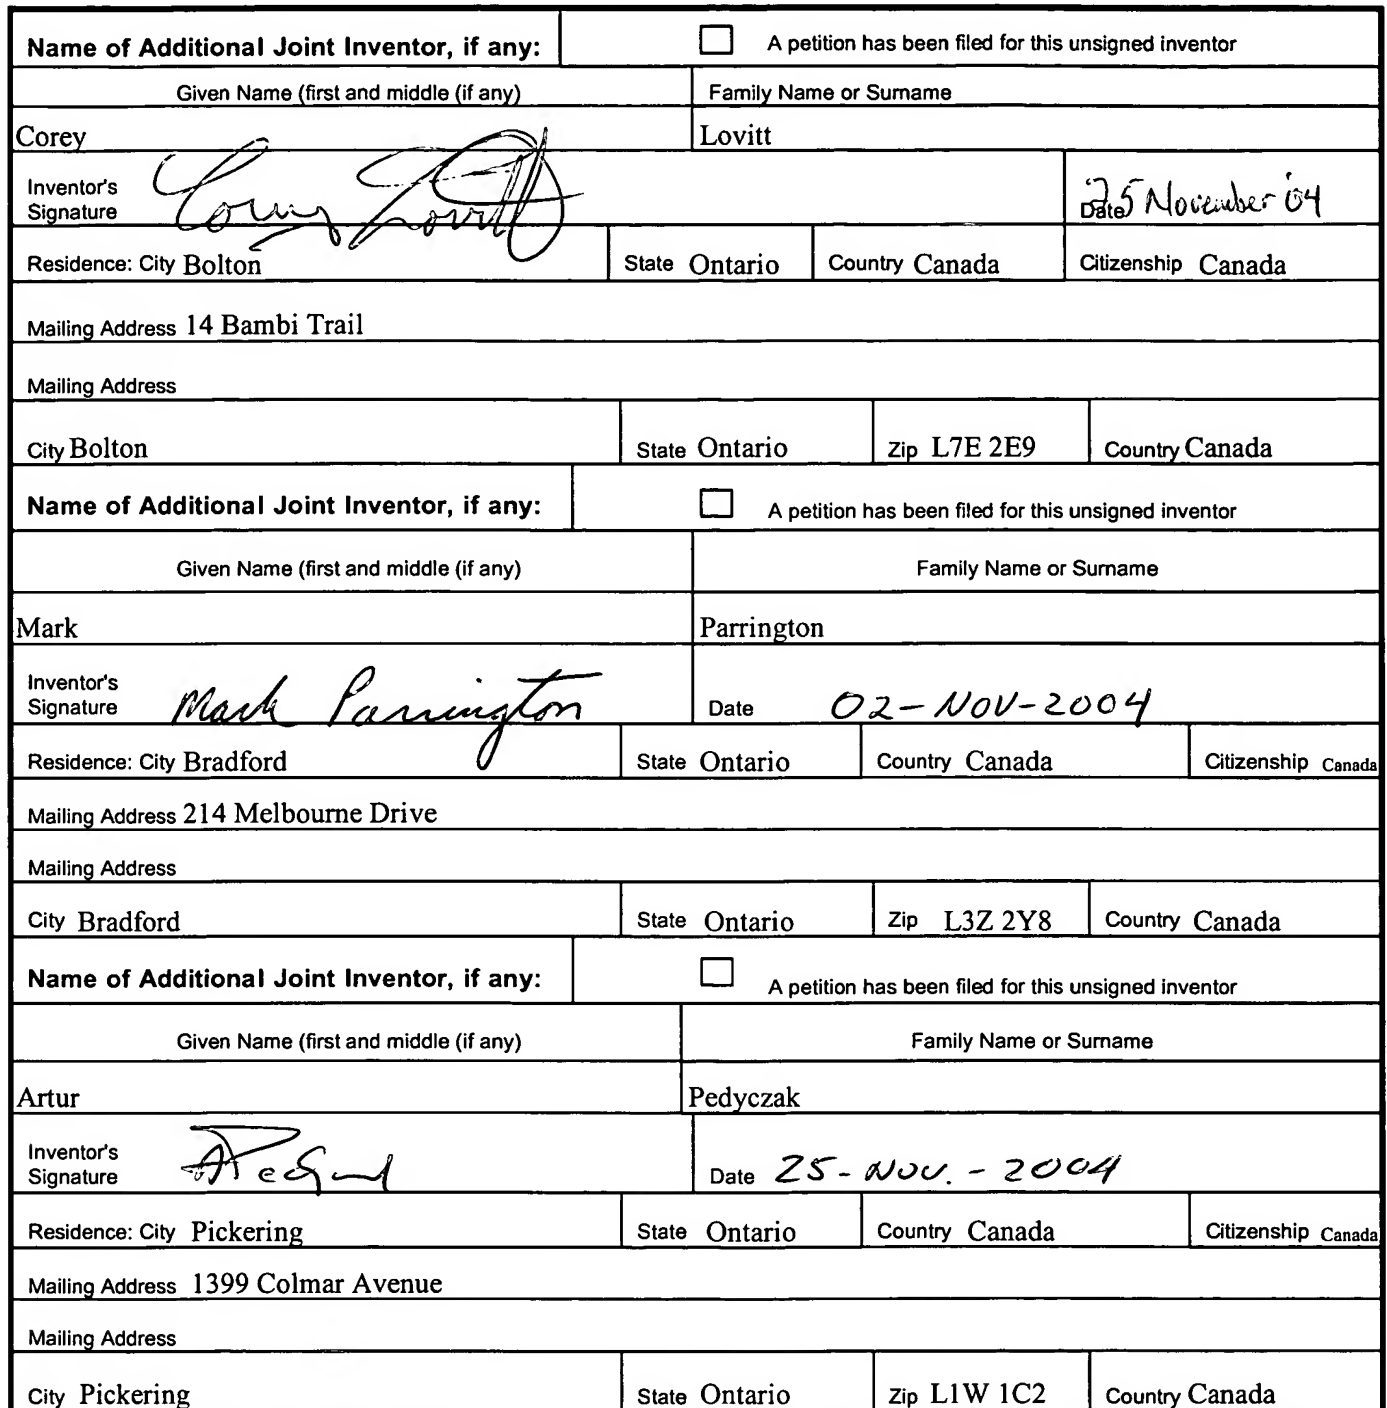 Name of Additional Joint Inventor, if any: A petition has been filed for this unsigned inventor
Given Name (first and middle (if any) Family Name or Surname
Corey Lovitt
Inventor's
Signature Corey Lovitt Date 25 November '04
Residence: City Bolton State Ontario Country Canada Citizenship Canada
Mailing Address 14 Bambi Trail
Mailing Address
City Bolton State Ontario Zip L7E 2E9 Country Canada
Name of Additional Joint Inventor, if any: A petition has been filed for this unsigned inventor
Given Name (first and middle (if any) Family Name or Surname
Mark Parrington
Inventor's
Signature Mark Parrington Date 02-NOV-2004
Residence: City Bradford State Ontario Country Canada Citizenship Canada
Mailing Address 214 Melbourne Drive
Mailing Address
City Bradford State Ontario Zip L3Z 2Y8 Country Canada
Name of Additional Joint Inventor, if any: A petition has been filed for this unsigned inventor
Given Name (first and middle (if any) Family Name or Surname
Artur Pedyczak
Inventor's
Signature Date 25-NOV.-2004
Residence: City Pickering State Ontario Country Canada Citizenship Canada
Mailing Address 1399 Colmar Avenue
Mailing Address
City Pickering State Ontario Zip L1W 1C2 Country Canada